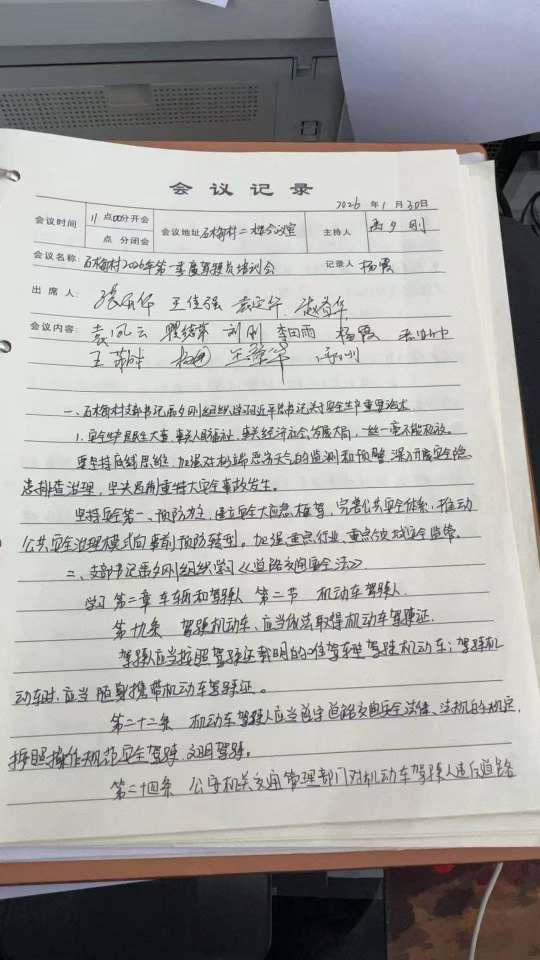 会议记录
2026年1月30日
会议时间 11点00分开会 会议地址 石梅村二楼会议室 主持人 刚
点 分闭会
会议名称: 石梅村2026年第一季度驾驶员培训会 记录人 杨霞
出席人: 王佳强
会议内容: 袁凤云 刘刚 李田雨 杨霞
一、石梅村支部书记 刚组织学习近平总书记关于安全生产重要论述
1.安全生产是民生大事,事关人民福祉,事关经济社会发展大局,一丝一毫不能放松。
要坚持底线思维,加强对极端恶劣天气的监测和预警,深入开展安全隐
患排查治理,坚决遏制重特大安全事故发生。
坚持安全第一、预防为主,建立安全大应急框架,完善公共安全体系,推动
公共安全治理模式向事前预防转型。加强重点行业、重点领域安全监管。
二、支部书记 刚组织学习《道路交通安全法》
学习 第二章 车辆和驾驶人 第二节 机动车驾驶人
第十九条 驾驶机动车,应当依法取得机动车驾驶证。
驾驶人应当按照驾驶证载明的准驾车型驾驶机动车;驾驶机
动车时,应当随身携带机动车驾驶证。
第二十二条 机动车驾驶人应当遵守道路交通安全法律、法规的规定,
按照操作规范安全驾驶、文明驾驶。
第二十四条 公安机关交通管理部门对机动车驾驶人违反道路